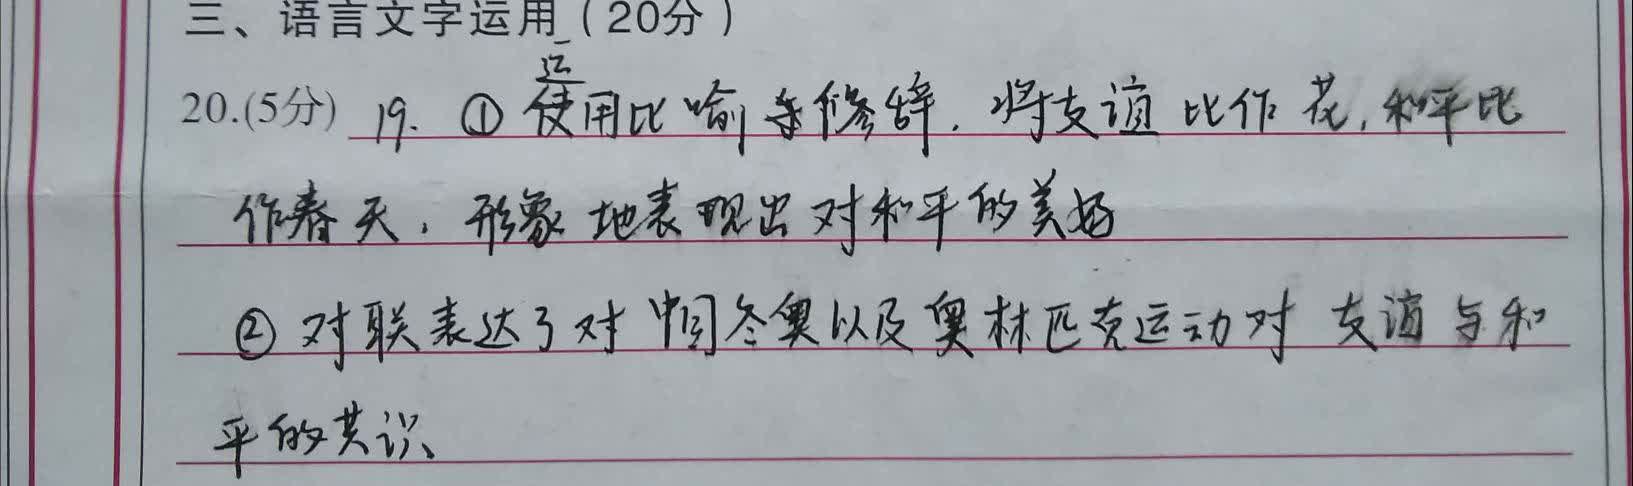 三、语言文字运用（20分）
运
20.(5分) 19. ①使用比喻修辞，将友谊比作花，和平比
作春天，形象地表现出对和平的美好
②对联表达了对中国冬奥以及奥林匹克运动对友谊与和
平的共识、